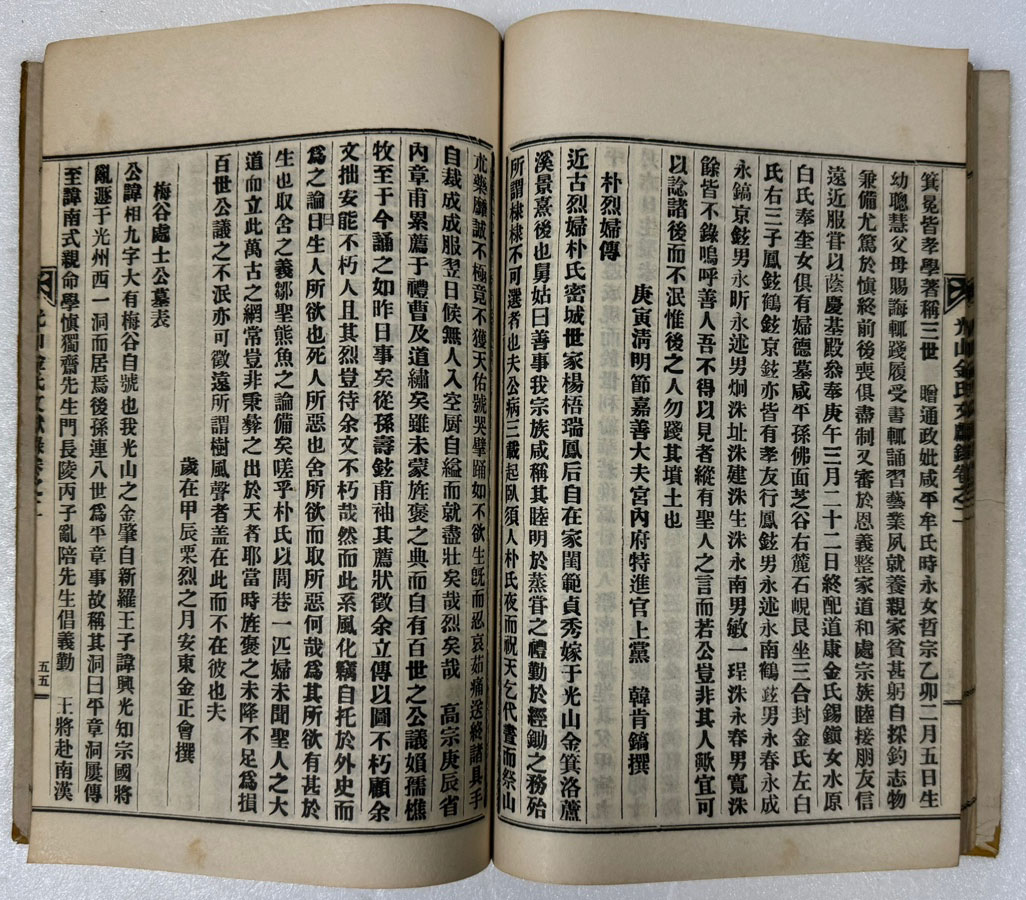 箕冕皆孝學著稱三世 贈通政妣咸平牟氏時永女哲宗乙卯二月五日生
幼聰慧父母賜誨輒踐履受書輒誦習藝業夙就養親家貧甚躬自採釣志物
兼備尤篤於愼終前後喪俱盡制又審於恩義整家道和處宗族睦接朋友信
遠近服嘗以蔭慶基殿叅奉庚午三月二十二日終配道康金氏錫鎭女水原
白氏奉奎女俱有婦德墓咸平孫佛面芝谷右麓石峴艮坐三合封金氏左白
氏右三子鳳鉉鶴鉉京鉉亦皆有孝友行鳳鉉男永述永南鶴鉉男永春永成
永鎬京鉉男永昕永述男炯洙址洙建洙生洙永南男敏一珵洙永春男寬洙
餘皆不錄嗚呼善人吾不得以見者縱有聖人之言而若公豈非其人歟宜可
以諗諸後而不泯惟後之人勿踐其墳土也
庚寅淸明節嘉善大夫宮內府特進官上黨 韓肯鎬撰
朴烈婦傳
近古烈婦朴氏密城世家楊梧瑞鳳后自在家閨範貞秀嫁于光山金箕洛蘆
溪景熹後也舅姑曰善事我宗族咸稱其睦明於蒸甞之禮勤於經鋤之務殆
所謂棣棣不可選者也夫公病三載起臥須人朴氏夜而祝天乞代晝而祭山
光山金氏文獻錄卷之二
朮藥靡誠不極竟不獲天佑號哭擘踊如不欲生旣而忍哀茹痛送終諸具手
自裁成成服翌日候無人入空厨自縊而就盡壯矣哉烈矣哉 高宗庚辰省
內章甫累薦于禮曹及道繡矣雖未蒙旌褒之典而自有百世之公議嬪孺樵
牧至于今誦之如昨日事矣從孫壽鉉甫袖其薦狀徵余立傳以圖不朽顧余
文拙安能不朽人且其烈豈待余文不朽哉然而此系風化竊自托於外史而
爲之論曰生人所欲也死人所惡也舍所欲而取所惡何哉爲其所欲有甚於
生也取舍之義鄒聖熊魚之論備矣嗟乎朴氏以閭巷一匹婦未聞聖人之大
道而立此萬古之綱常豈非秉彝之出於天者耶當時旌褒之未降不足爲損
百世公議之不泯亦可徵遠所謂樹風聲者盖在此而不在彼也夫
歲在甲辰栗烈之月安東金正會撰
梅谷處士公墓表
公諱相九字大有梅谷自號也我光山之金肇自新羅王子諱興光知宗國將
亂遯于光州西一洞而居焉後孫連八世爲平章事故稱其洞曰平章洞屢傳
至諱南式親命學愼獨齋先生門長陵丙子亂陪先生倡義勤 王將赴南漢
五五